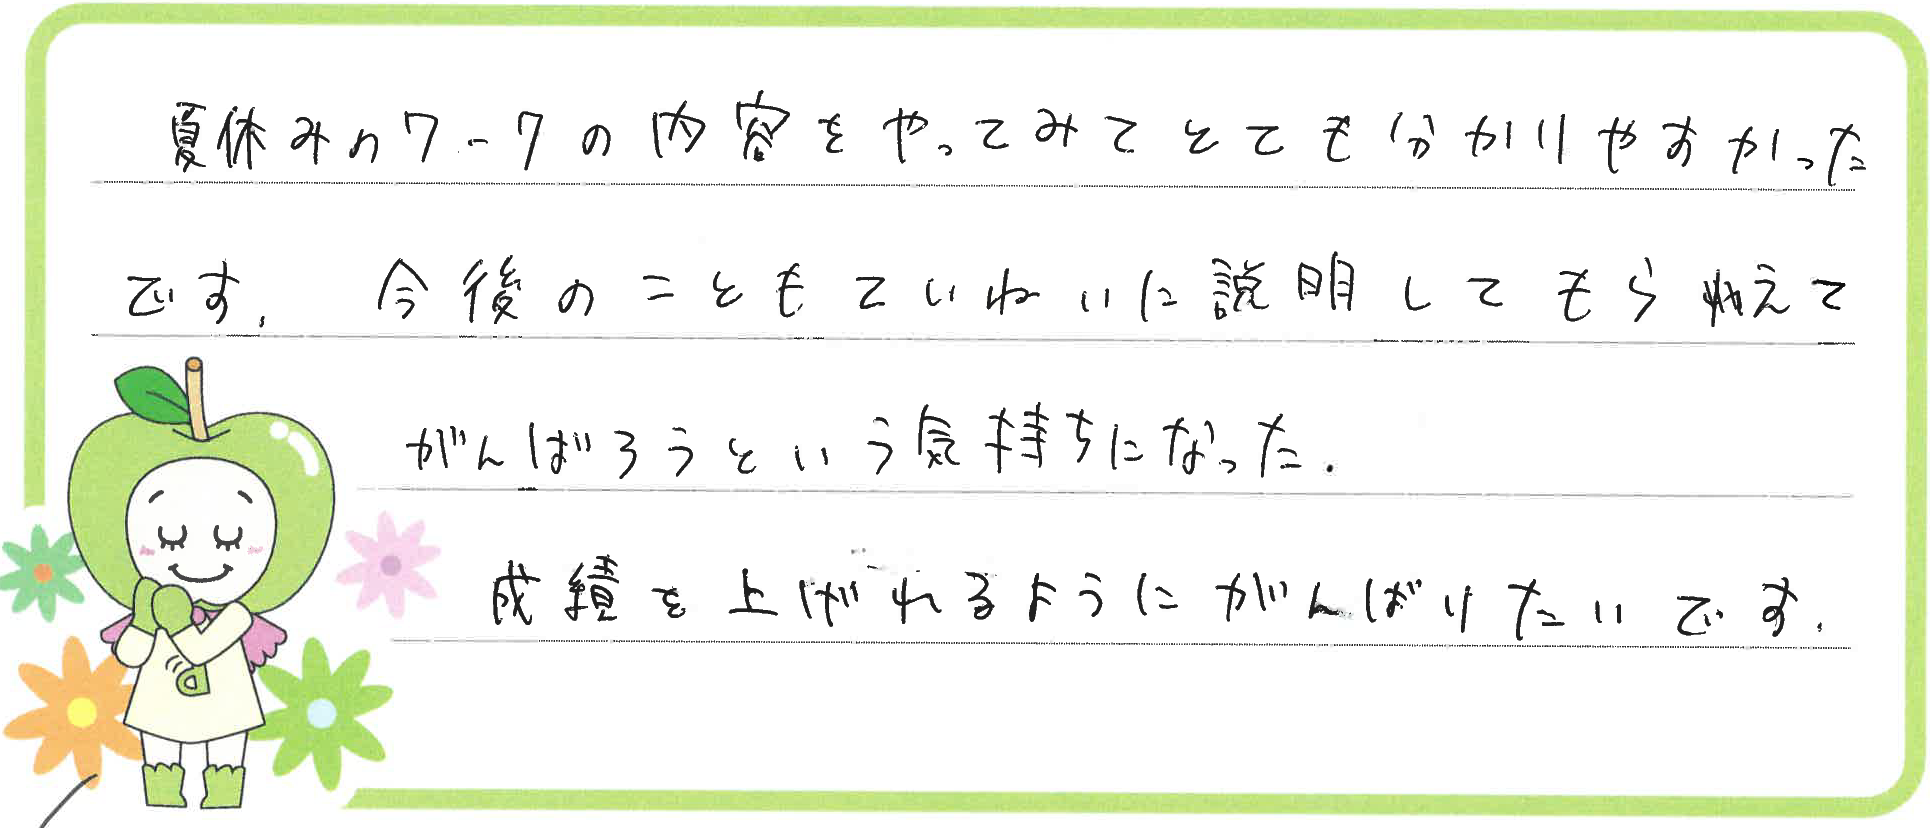 夏休みのワークの内容をやってみてとても分かりやすかった
です。今後のこともていねいに説明してもらえて
がんばろうという気持ちになった.
成績を上げれるようにがんばりたいです.